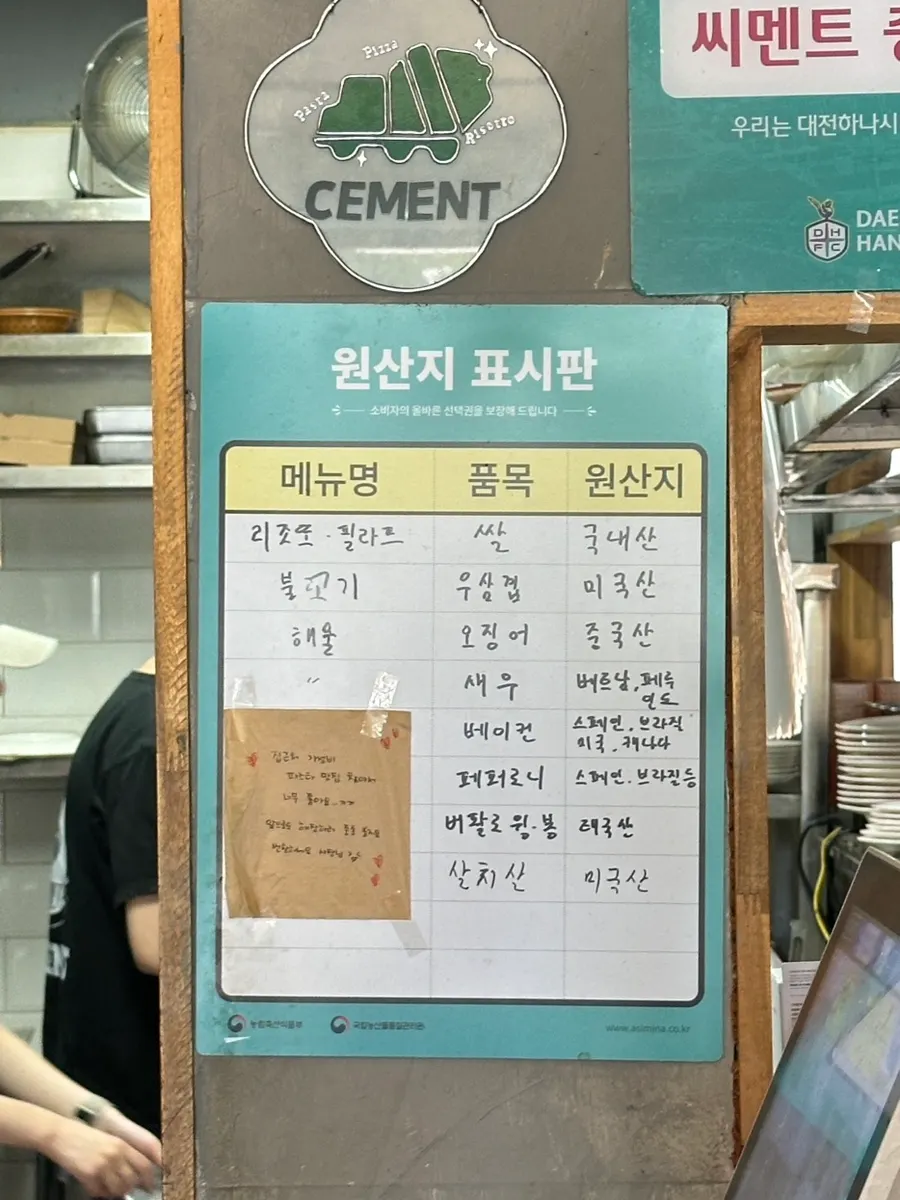 Pizza
Pasta
Risotto
CEMENT
씨멘트
우리는 대전하나시
DAE
HAN
DHFC
원산지 표시판
소비자의 올바른 선택권을 보장해 드립니다
메뉴명 품목 원산지
리조또·필라프 쌀 국내산
불고기 우삼겹 미국산
해물 오징어 중국산
〃 새우 베트남, 페루
인도
베이컨 스페인, 브라질
미국, 캐나다
페퍼로니 스페인, 브라질 등
버팔로 윙·봉 태국산
살치살 미국산
집근처 가성비
파스타 맛집 찾아서
너무 좋아요..ㅠㅠ
농림축산식품부
국립농산물품질관리원